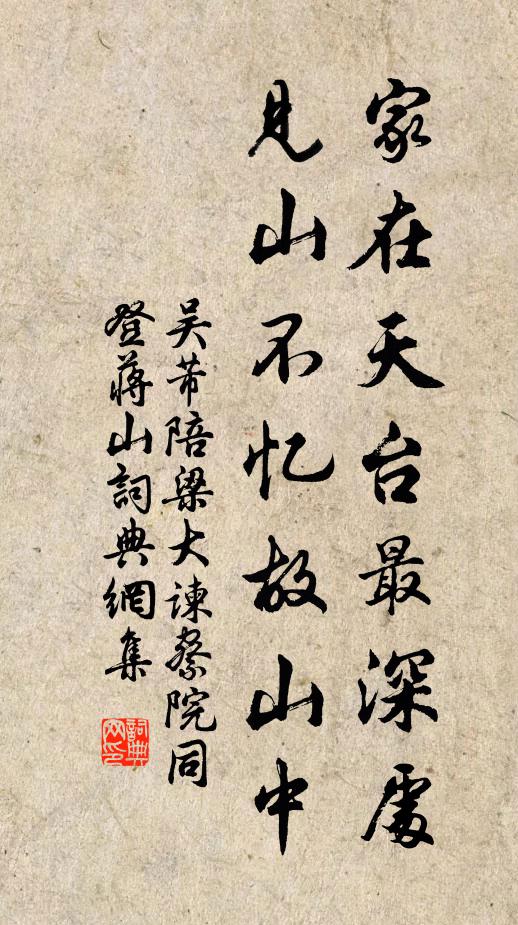 家在天台最深處
見山不忆故山中
吴芾陪梁大諫察院同
登蒋山詞典網集
詞典
网印